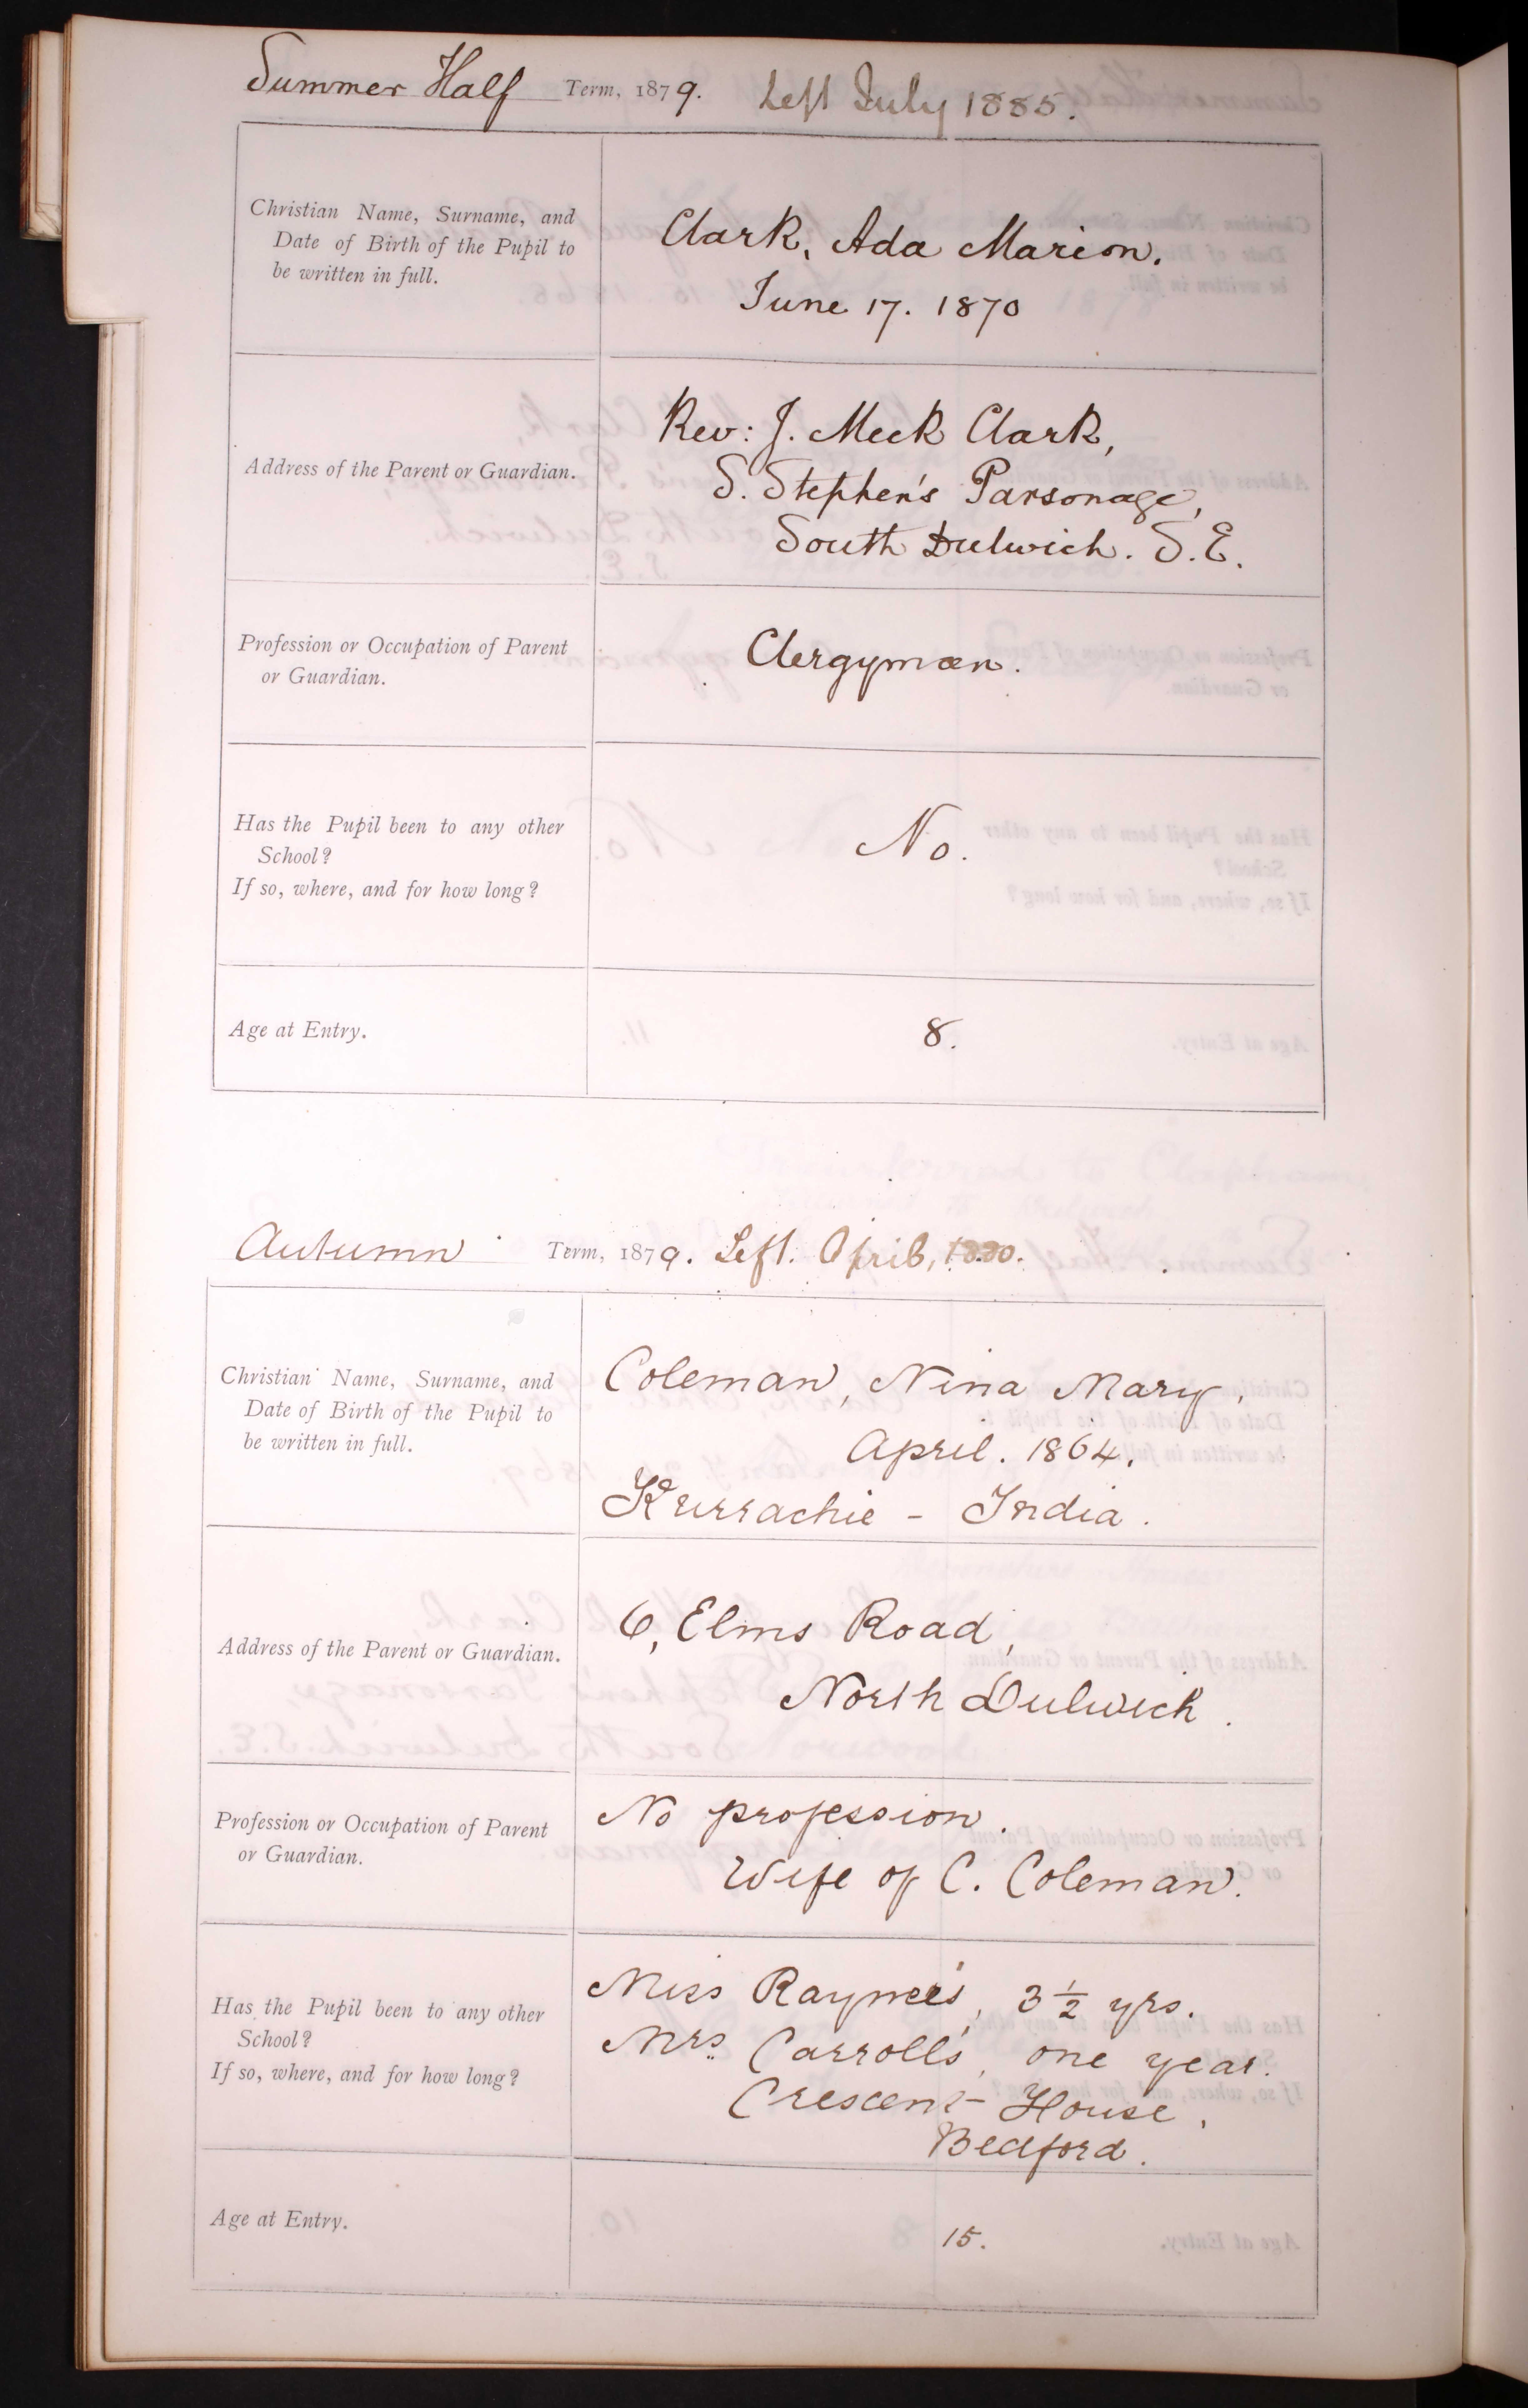 Summer Half Term, 1879. Left July 1885.
Christian Name, Surname, and
Date of Birth of the Pupil to
be written in full.
Clark, Ada Marion.
June 17. 1870
Address of the Parent or Guardian.
Rev: J. Meek Clark,
S. Stephen's Parsonage,
South Dulwich. S.E.
Profession or Occupation of Parent
or Guardian.
Clergyman.
Has the Pupil been to any other
School?
If so, where, and for how long?
No.
Age at Entry.
8.
Autumn Term, 1879. Left. April, 1880.
Christian Name, Surname, and
Date of Birth of the Pupil to
be written in full.
Coleman, Nina Mary,
April. 1864.
Kurrachie - India.
Address of the Parent or Guardian.
6, Elms Road,
North Dulwich.
Profession or Occupation of Parent
or Guardian.
No profession.
Wife of C. Coleman.
Has the Pupil been to any other
School?
If so, where, and for how long?
Miss Raymer's, 3½ yrs.
Mrs. Carroll's, one year.
Crescent House,
Bedford.
Age at Entry.
15.